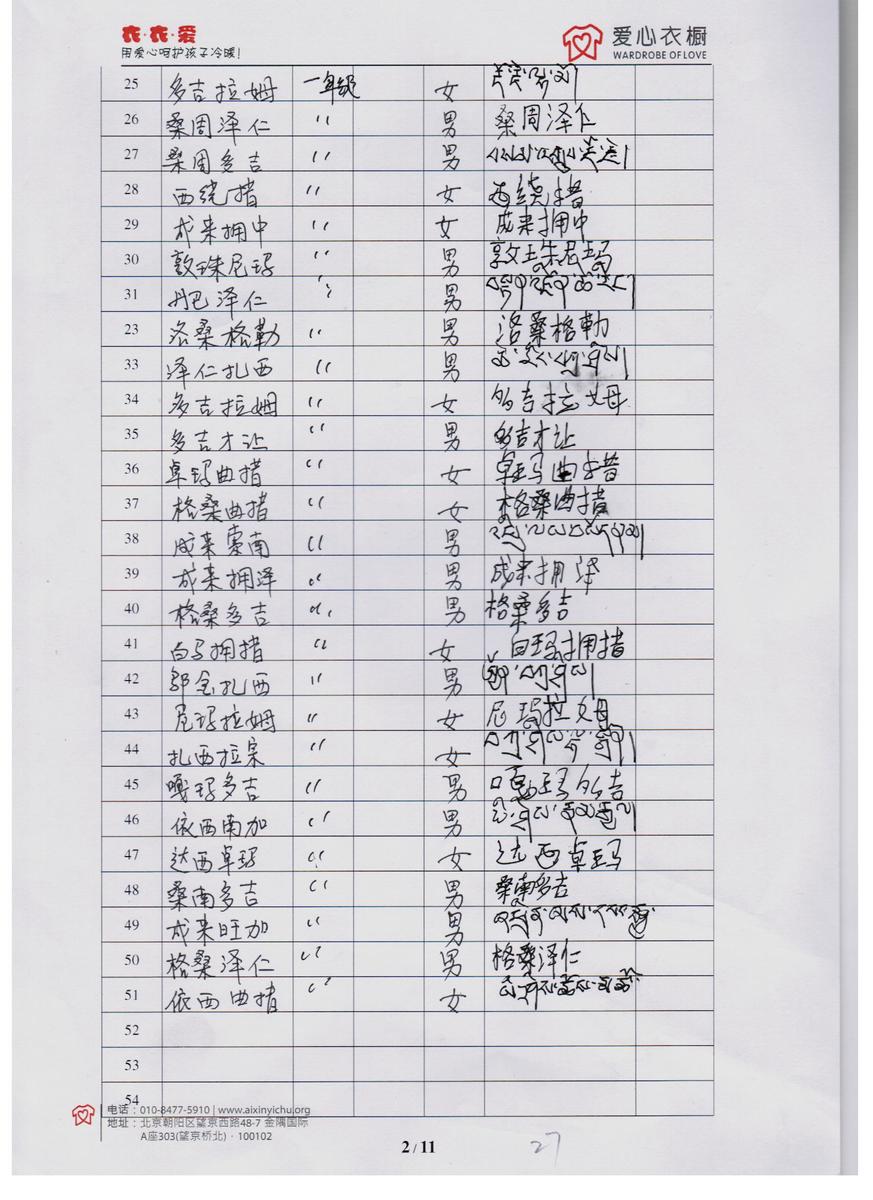 衣·衣·爱
用爱心呵护孩子冷暖!
爱心衣橱
WARDROBE OF LOVE
25 多吉拉姆 一年级 女
26 桑周泽仁 〃 男 桑周泽仁
27 桑周多吉 〃 男
28 西绕措 〃 女 西绕措
29 成来拥中 〃 女 成来拥中
30 敦珠尼玛 〃 男 敦珠尼玛
31 丹巴泽仁 〃 男
23 洛桑格勒 〃 男 洛桑格勒
33 泽仁扎西 〃 男
34 多吉拉姆 〃 女 多吉拉姆
35 多吉才让 〃 男 多吉才让
36 卓玛曲措 〃 女 卓玛曲措
37 格桑曲措 〃 女 格桑曲措
38 成来索南 〃 男
39 成来拥泽 〃 男 成来拥泽
40 格桑多吉 〃 男 格桑多吉
41 白马拥措 〃 女 白玛拥措
42 邬金扎西 〃 男
43 尼玛拉姆 〃 女 尼玛拉姆
44 扎西拉宗 〃 女
45 嘎玛多吉 〃 男 嘎玛多吉
46 依西南加 〃 男
47 达西卓玛 〃 女 达西卓玛
48 桑南多吉 〃 男 桑南多吉
49 成来旺加 〃 男
50 格桑泽仁 〃 男 格桑泽仁
51 依西曲措 〃 女
52
53
54
电话：010-8477-5910 | www.aixinyichu.org
地址：北京朝阳区望京西路48-7 金隅国际
A座303(望京桥北)·100102
2 / 11
27